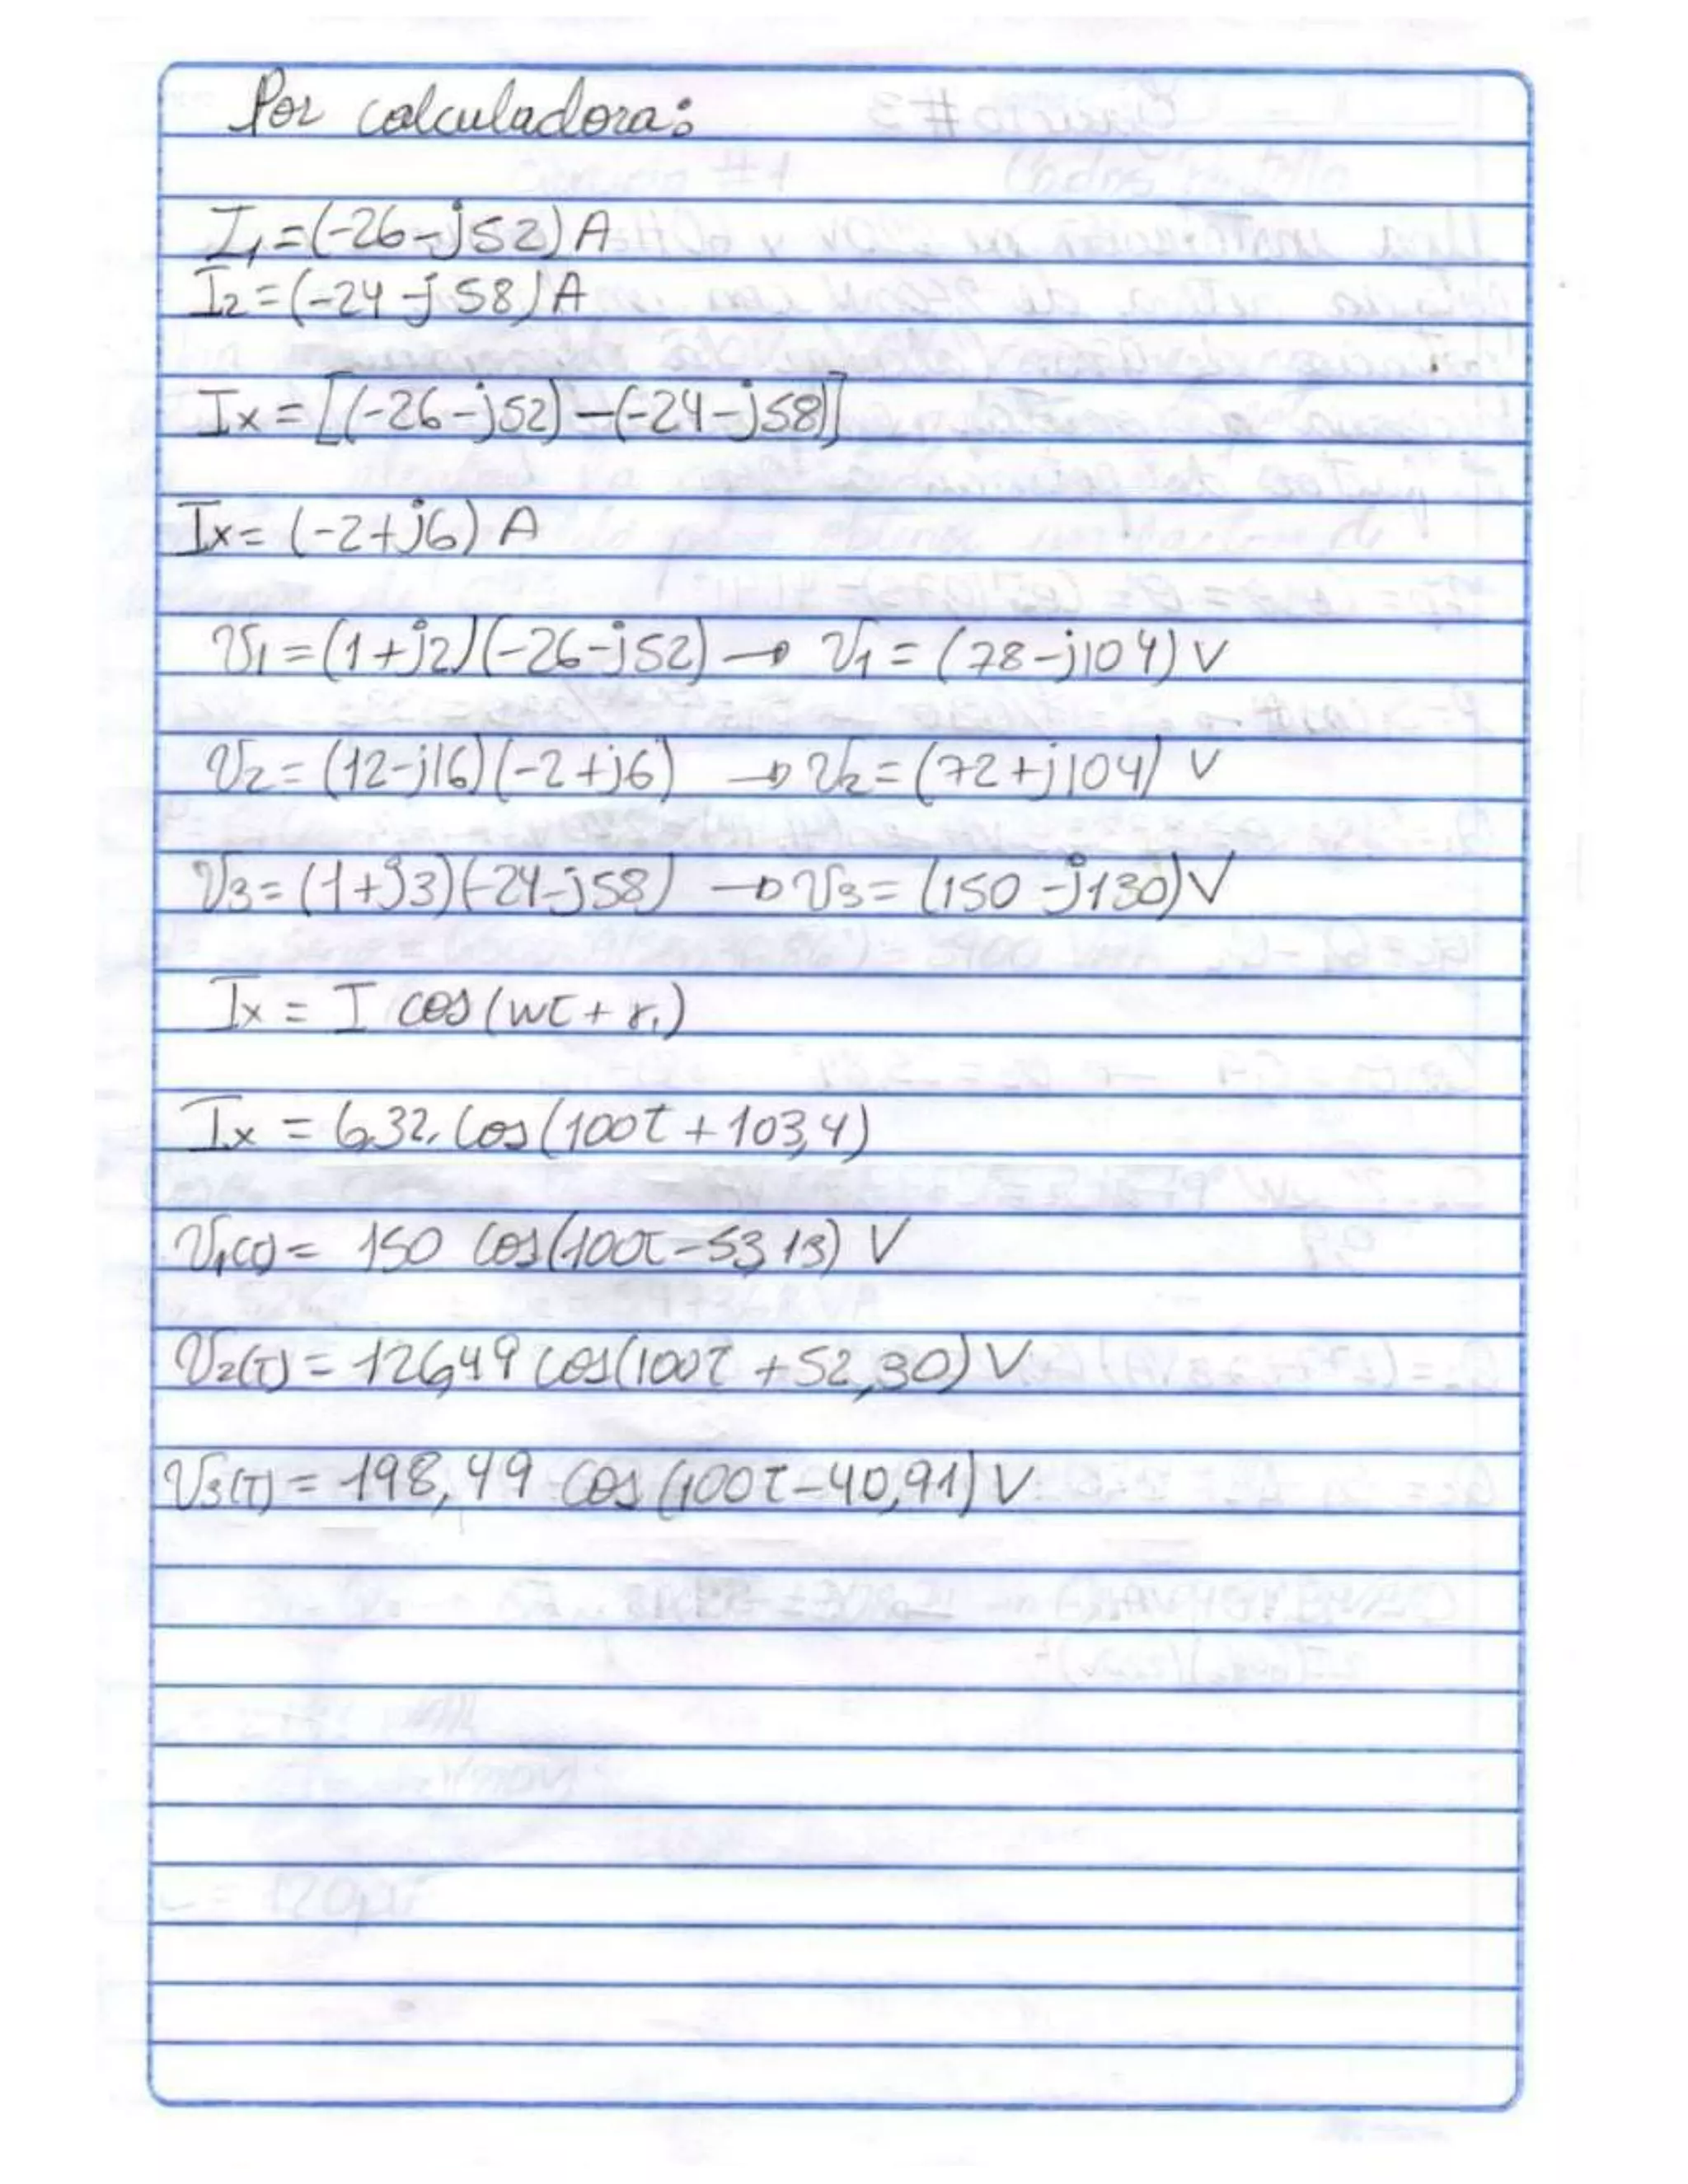 Por calculadora:
I1=(-26-j52)A
I2=(-24-j58)A
Ix=[(-26-j52)-(-24-j58)]
Ix=(-2+j6) A
V1=(1+j2)(-26-j52)→ V1=(78-j104) V
V2=(12-j16)(-2+j6) →V2=(72+j104) V
V3=(1+j3)(-24-j58) →V3=(150-j130)V
Ix = I cos(wt + γ1)
Ix = 6,32. Cos(100t + 103,4)
V1(t)= 150 Cos(100t-53 13) V
V2(t)=126,49 cos(100t +52,30) V
V3(t)=198,49 Cos(100t-40,91) V